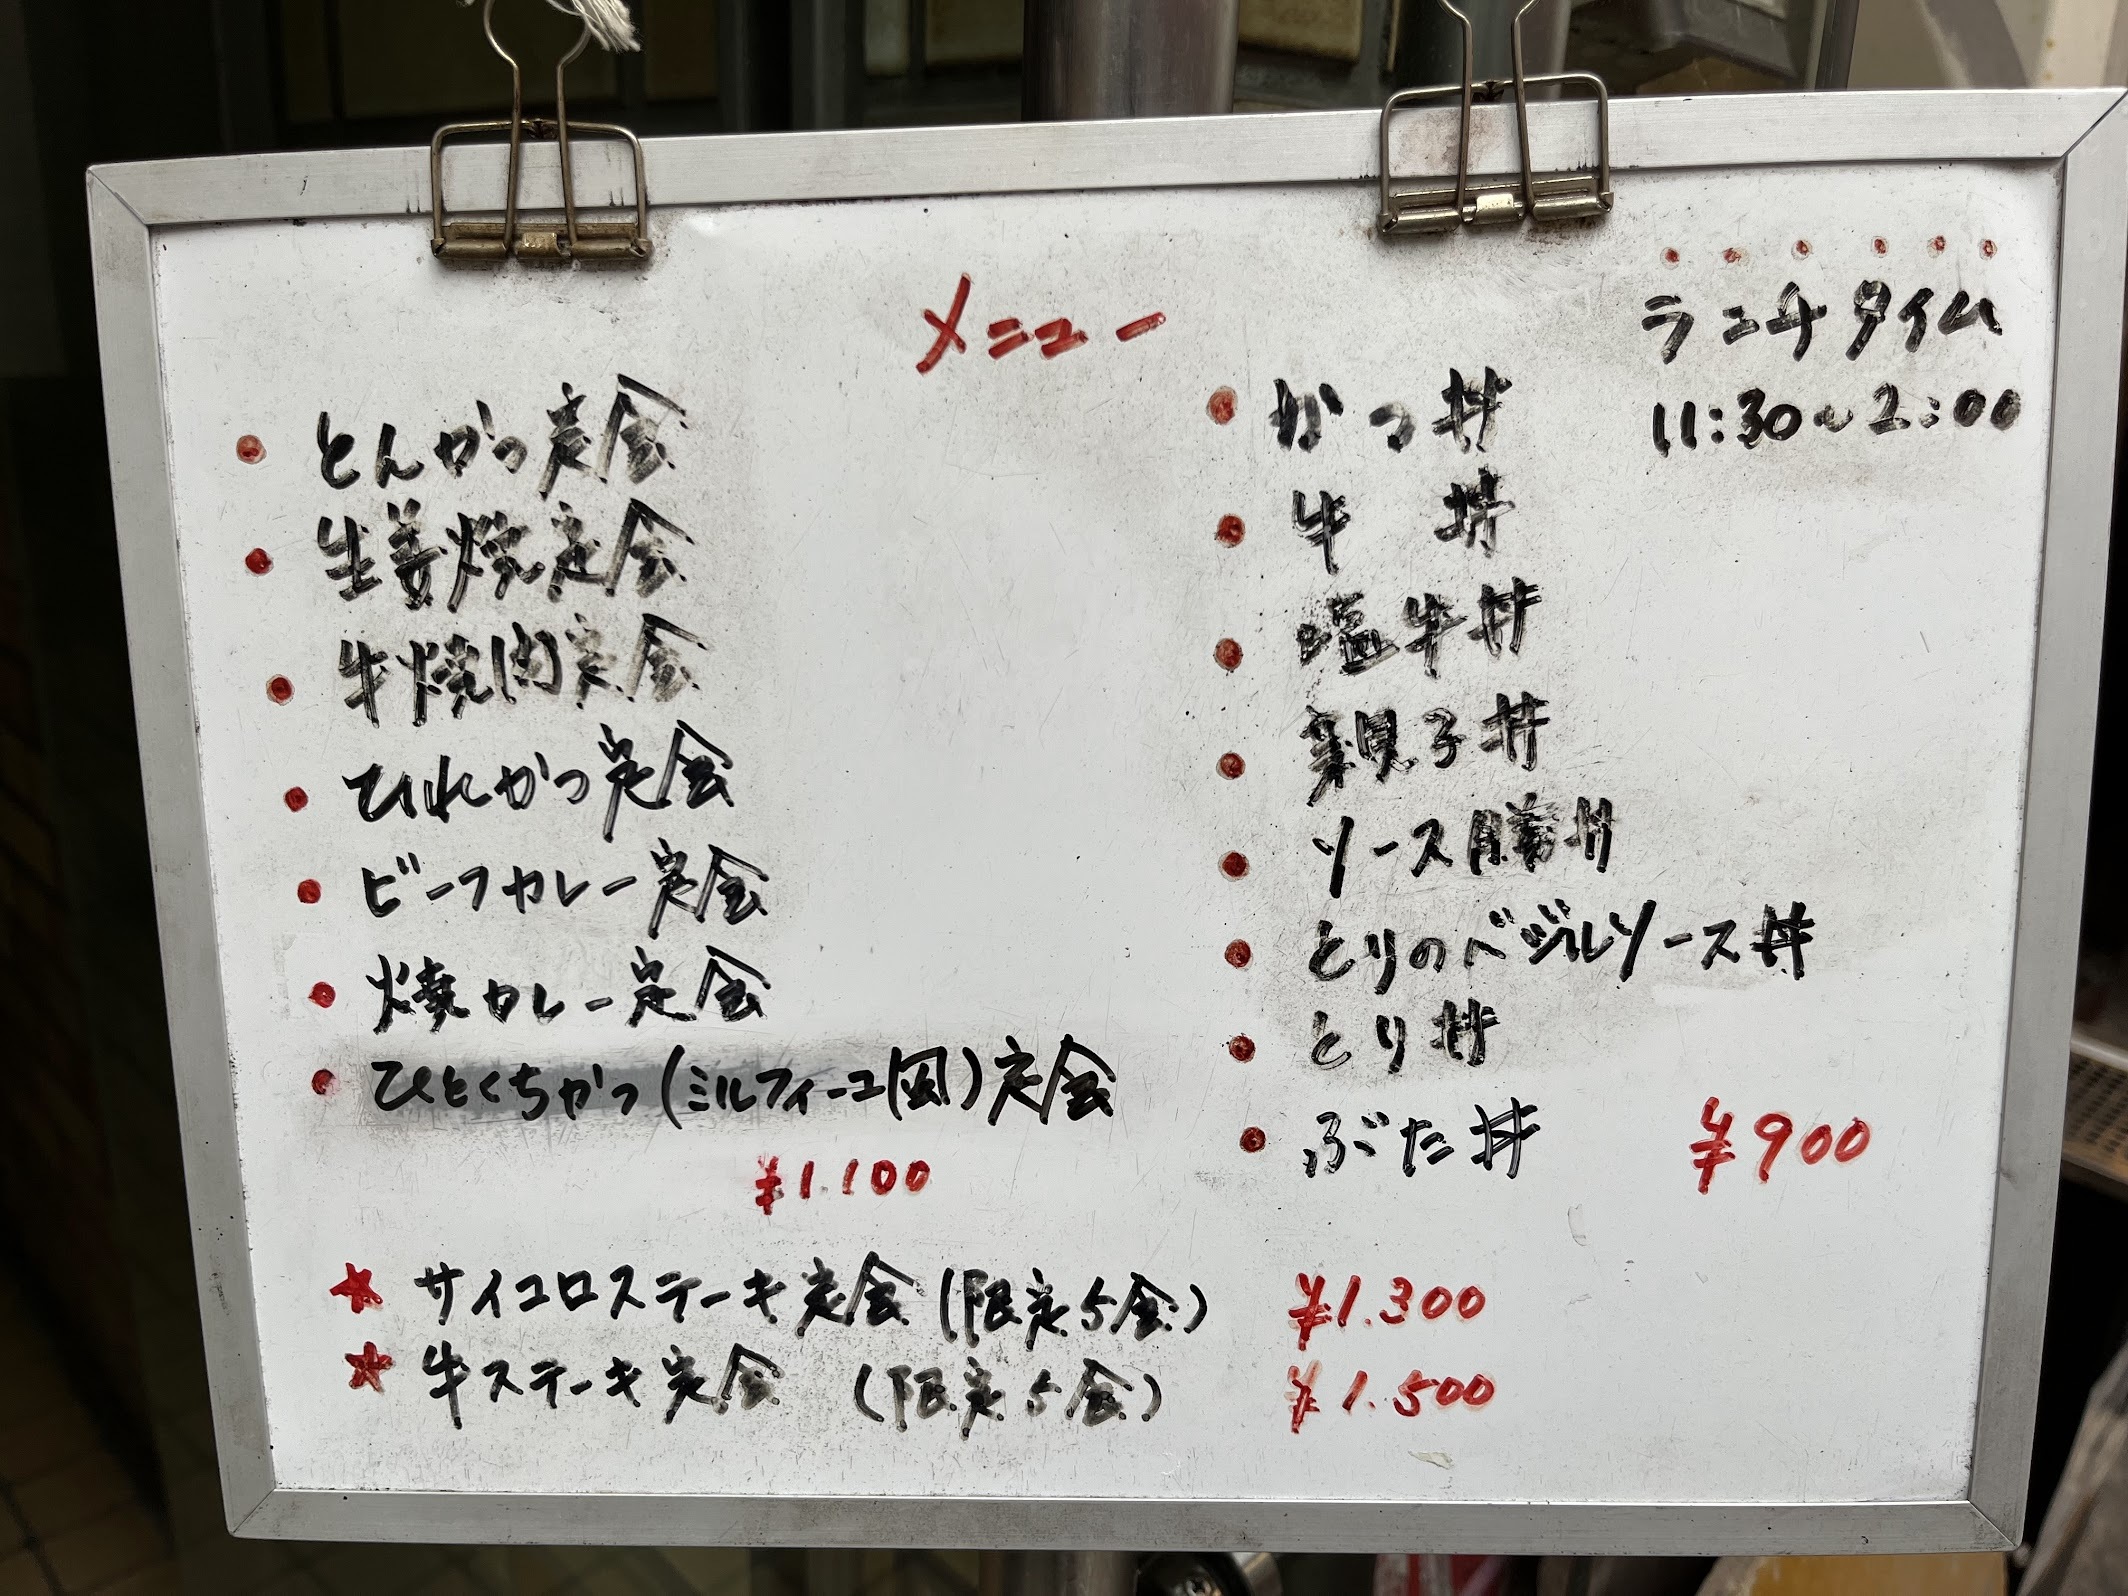 メニュー
ランチタイム
11:30〜2:00
・とんかつ定食
・生姜焼定食
・牛焼肉定食
・ひれかつ定食
・ビーフカレー定食
・焼カレー定食
・ひとくちかつ(ミルフィーユ風)定食
¥1.100
・かつ丼
・牛丼
・塩牛丼
・親子丼
・ソース勝丼
・とりのベジルソース丼
・とり丼
・ぶた丼 ¥900
★サイコロステーキ定食(限定5食) ¥1.300
★牛ステーキ定食 (限定5食) ¥1.500